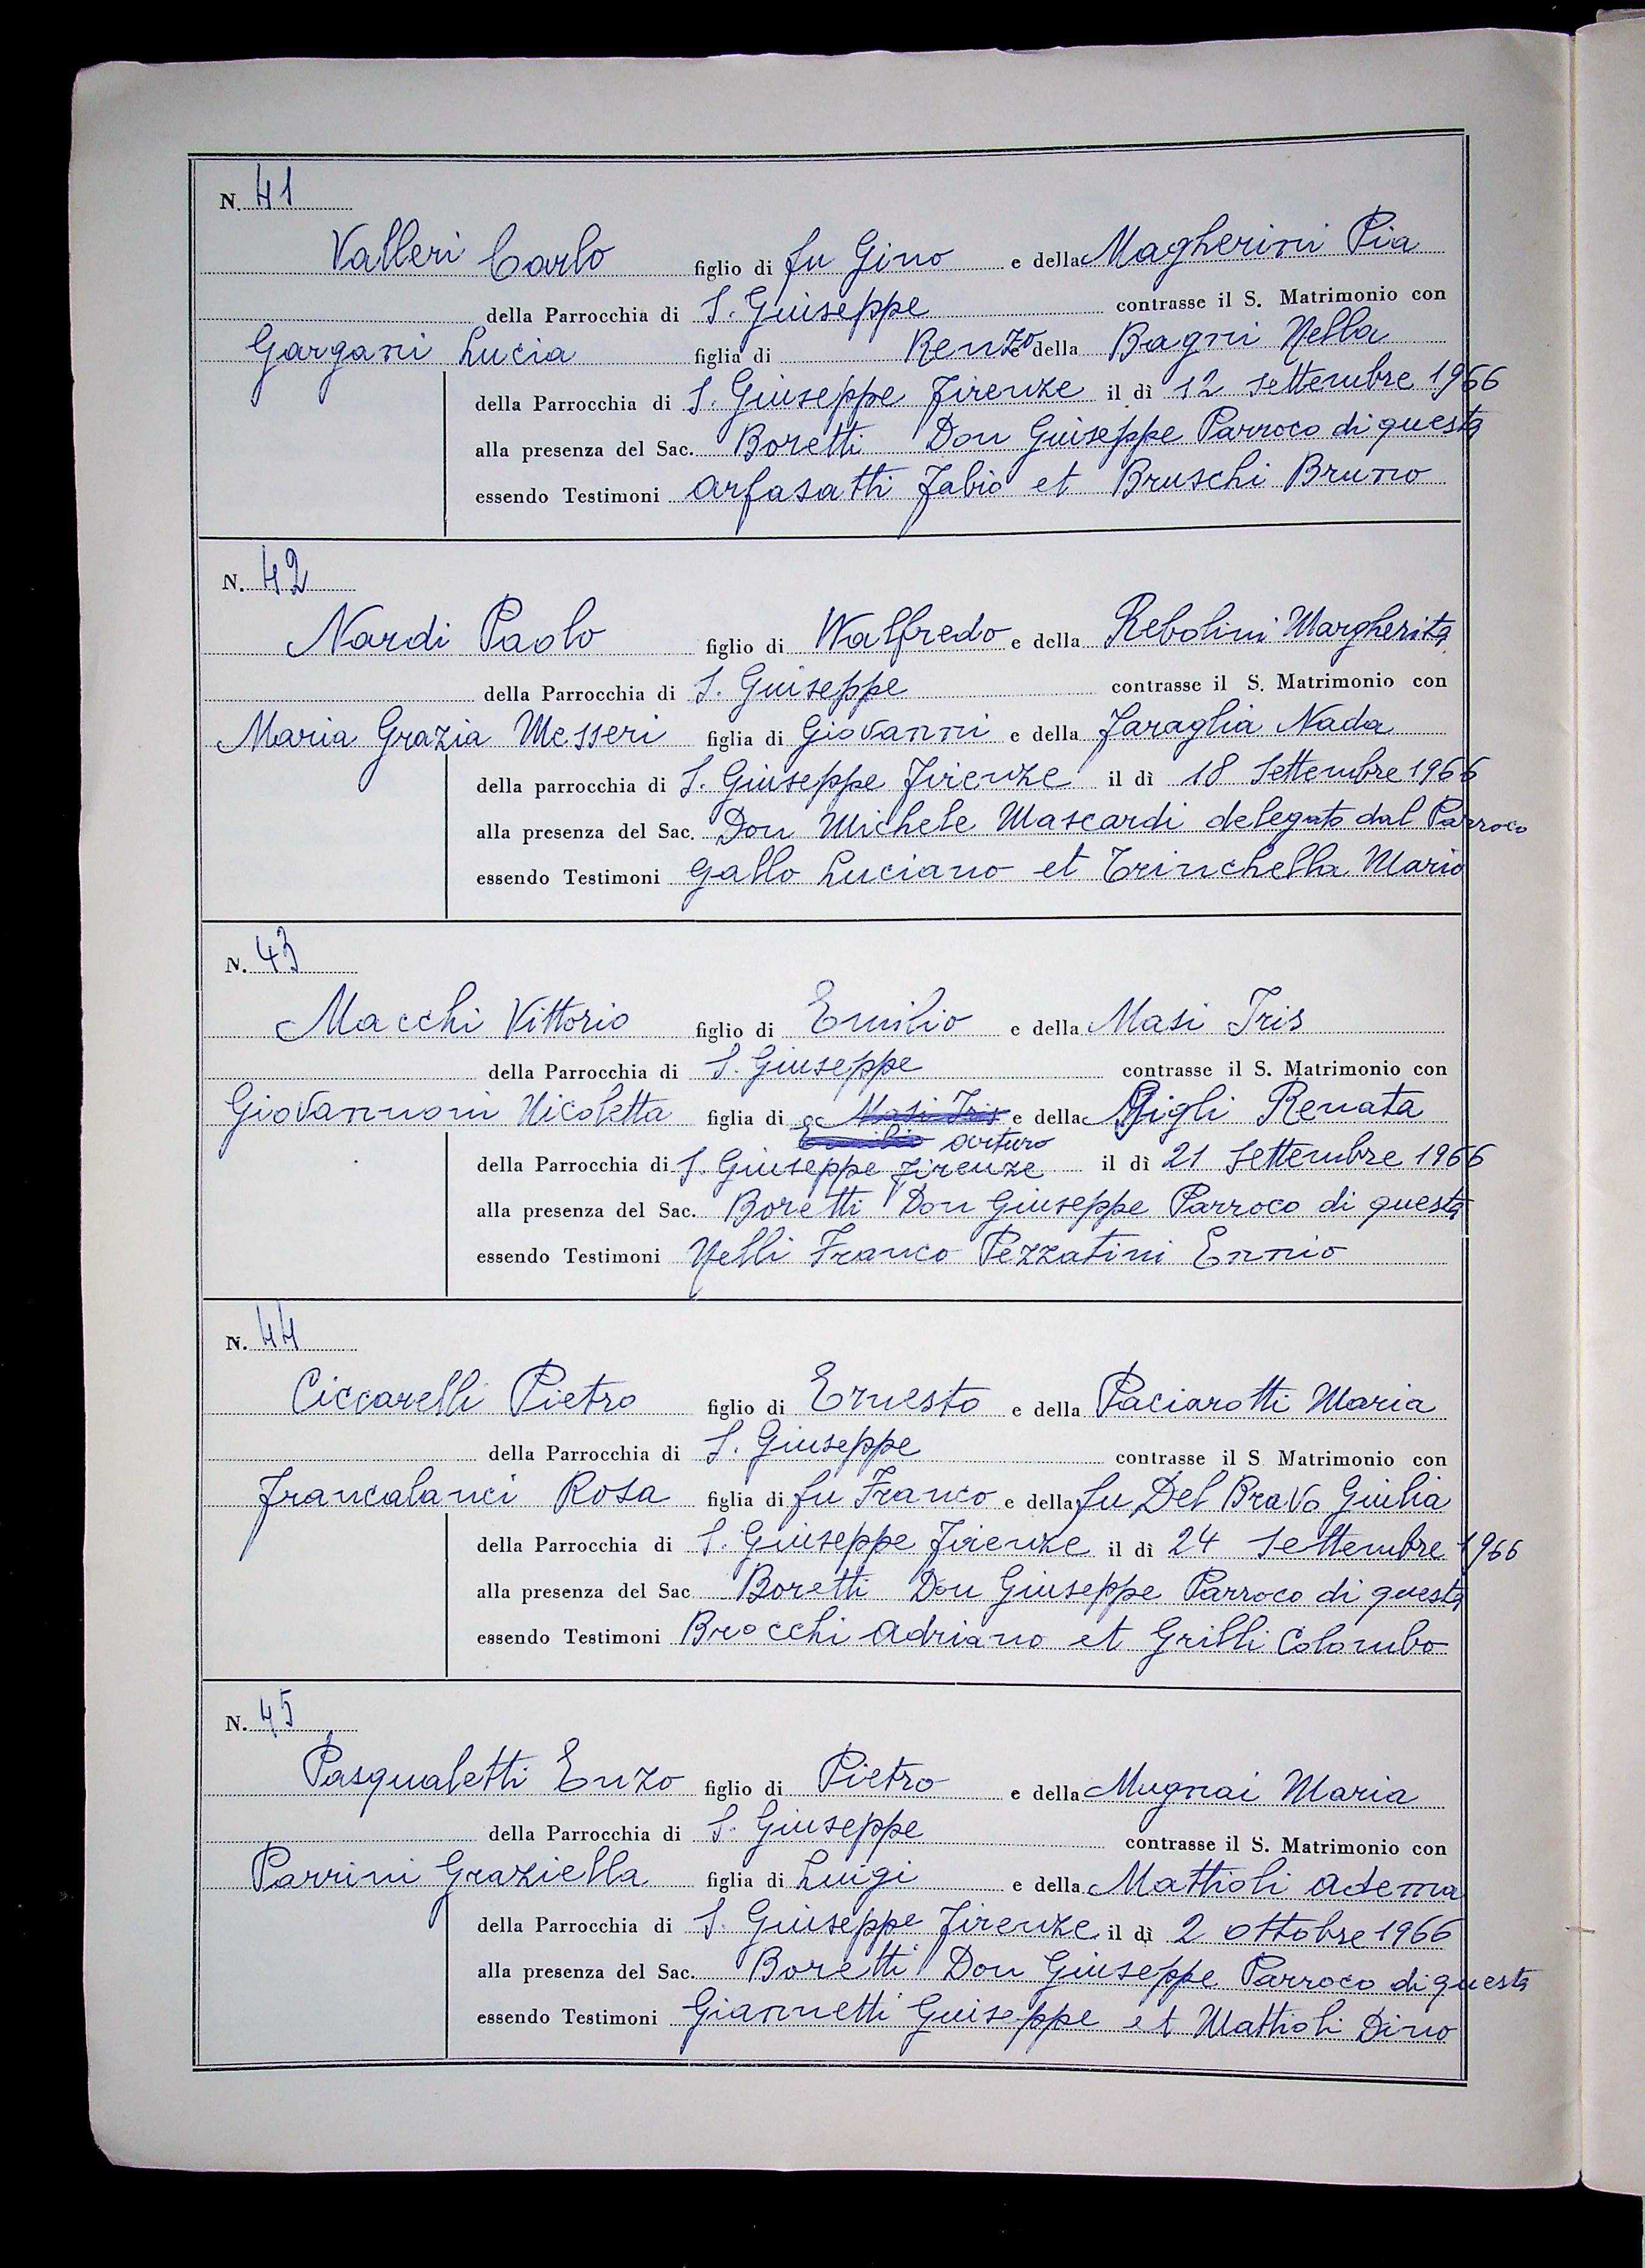 N. 41
Valleri Carlo figlio di fu Gino e della Magherini Pia
della Parrocchia di S. Giuseppe contrasse il S. Matrimonio con
Gargani Lucia figlia di Renzo e della Bagni Nella
della Parrocchia di S. Giuseppe Firenze il dì 12 Settembre 1966
alla presenza del Sac. Boretti Don Giuseppe Parroco di questa
essendo Testimoni Arfasatti Fabio et Bruschi Bruno
N. 42
Nardi Paolo figlio di Walfredo e della Rebolini Margherita
della Parrocchia di S. Giuseppe contrasse il S. Matrimonio con
Maria Grazia Messeri figlia di Giovanni e della Faraglia Nada
della parrocchia di S. Giuseppe Firenze il dì 18 Settembre 1966
alla presenza del Sac. Don Michele Mascardi delegato dal Parroco
essendo Testimoni Gallo Luciano et Trinchella Mario
N. 43
Macchi Vittorio figlio di Emilio e della Masi Iris
della Parrocchia di S. Giuseppe contrasse il S. Matrimonio con
Giovannoni Nicoletta figlia di Masi Iris e della Gigli Renata
Emilio Arturo
della Parrocchia di S. Giuseppe Firenze il dì 21 Settembre 1966
alla presenza del Sac. Boretti Don Giuseppe Parroco di questa
essendo Testimoni Nelli Franco Pezzatini Ennio
N. 44
Ciccarelli Pietro figlio di Ernesto e della Paciarotti Maria
della Parrocchia di S. Giuseppe contrasse il S Matrimonio con
Francalanci Rosa figlia di fu Franco e della fu Del Bravo Giulia
della Parrocchia di S. Giuseppe Firenze il dì 24 Settembre 1966
alla presenza del Sac Boretti Don Giuseppe Parroco di questa
essendo Testimoni Brocchi Adriano et Grilli Colombo
N. 45
Pasqualetti Enzo figlio di Pietro e della Mugnai Maria
della Parrocchia di S. Giuseppe contrasse il S. Matrimonio con
Parrini Graziella figlia di Luigi e della Mattioli Adema
della Parrocchia di S. Giuseppe Firenze il dì 2 Ottobre 1966
alla presenza del Sac. Boretti Don Giuseppe Parroco di questa
essendo Testimoni Giannetti Guiseppe et Mattioli Dino